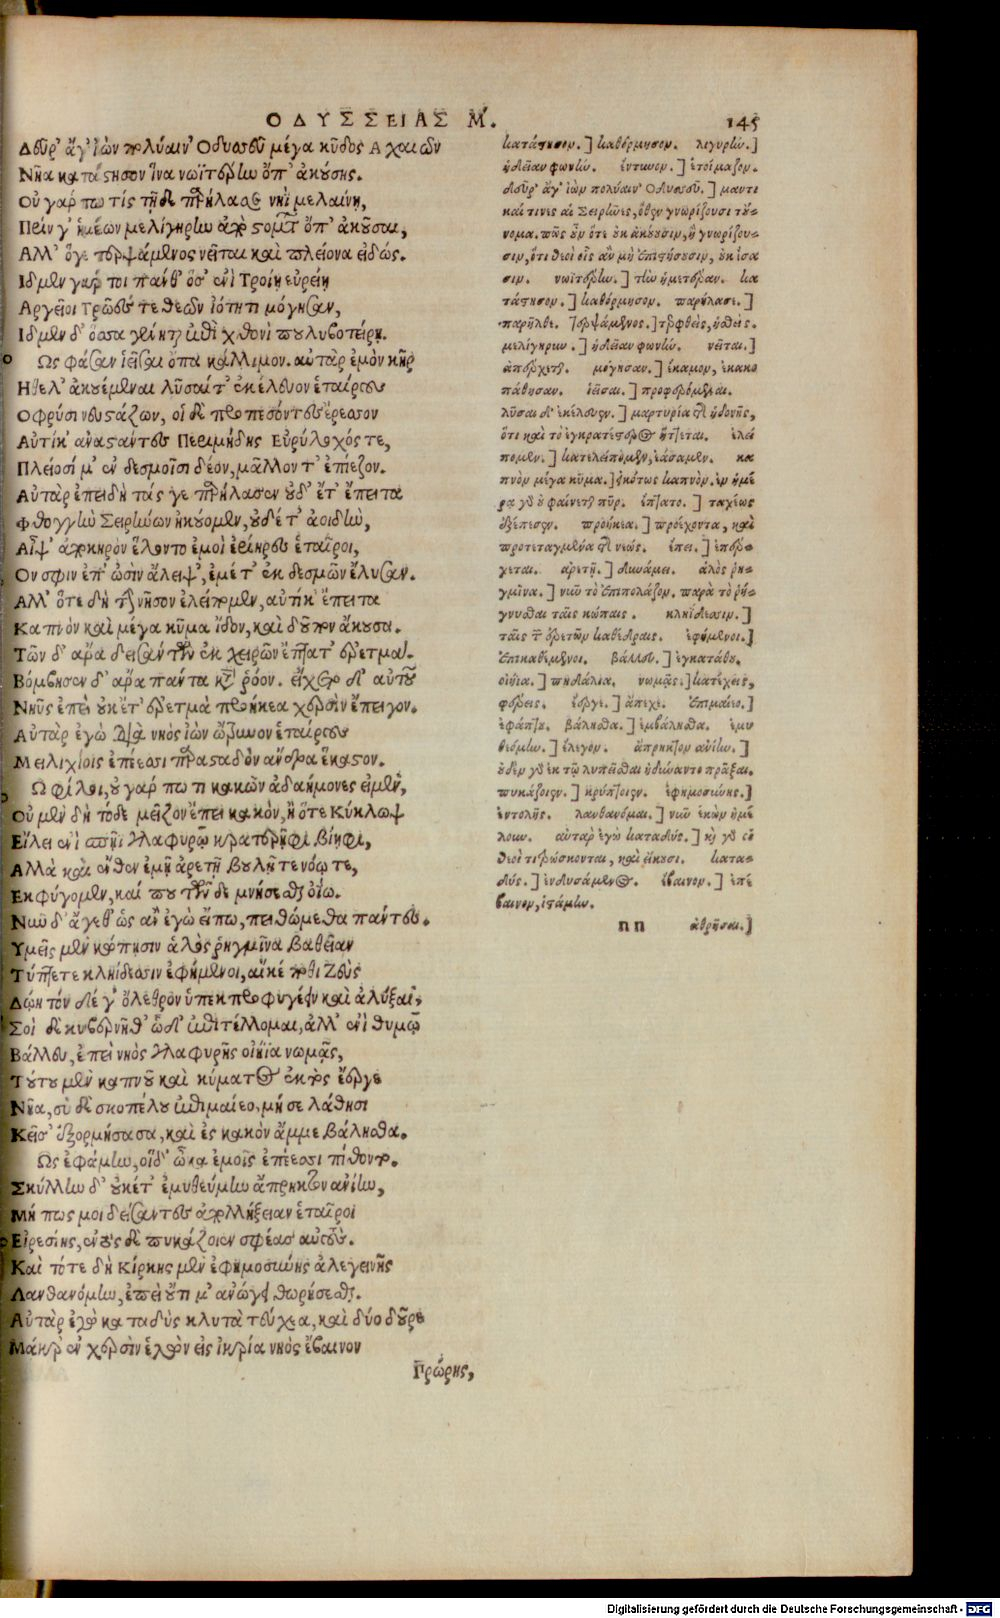 ΟΔΥΣΣΕΙΑΣ Μ. 145
Δεῦρ' ἄγ' ἰὼν πολύαιν' Οδυσσεῦ μέγα κῦδος Αχαιῶν
Νῆα κατάστησον ἵνα νωϊτέρην ὄπ' ἀκούσῃς.
Οὐ γάρ πω τίς τῇδε παρήλασε νηῒ μελαίνῃ,
Πρίν γ' ἡμέων μελίγηρυν ἀπὸ στομάτων ὄπ' ἀκοῦσαι,
Αλλ' ὅγε τερψάμενος νεῖται καὶ πλείονα εἰδώς.
Ιδμεν γάρ τοι πάνθ' ὅσ' ἐνὶ Τροίῃ εὐρείῃ
Αργεῖοι Τρῶές τε θεῶν ἰότητι μόγησαν,
Ιδμεν δ' ὅσσα γένηται ἐπὶ χθονὶ πουλυβοτείρῃ.
Ως φάσαν ἱεῖσαι ὄπα κάλλιμον. αὐτὰρ ἐμὸν κῆρ
Ηθελ' ἀκουέμεναι λῦσαί τ' ἐκέλευον ἑταίρους
Οφρύσι νευστάζων, οἱ δὲ προπεσόντες ἔρεσσον
Αὐτίκ' ἀναστάντες Περιμήδης Εὐρύλοχός τε,
Πλείοσί μ' ἐν δεσμοῖσι δέον, μᾶλλον τ' ἐπίεζον.
Αὐτὰρ ἐπειδὴ τάς γε παρήλασον οὐδ' ἔτ' ἔπειτα
Φθογγὴν Σειρήνων ἠκούομεν, οὐδέ τ' ἀοιδὴν,
Αἶψ' ἀπὸ κηρὸν ἕλοντο ἐμοὶ ἐρίηρες ἑταῖροι,
Ον σφιν ἐπ' ὠσὶν ἄλειψ', ἐμέ τ' ἐκ δεσμῶν ἔλυσαν.
Αλλ' ὅτε δὴ τὴν νῆσον ἐλείπομεν, αὐτίκ' ἔπειτα
Καπνὸν καὶ μέγα κῦμα ἴδον, καὶ δοῦπον ἄκουσα.
Τῶν δ' ἄρα δεισάντων ἐκ χειρῶν ἔπτατ' ἐρετμά.
Βόμβησεν δ' ἄρα πάντα κατὰ ῥόον. ἔσχετο δ' αὐτοῦ
Νηῦς ἐπεὶ οὐκέτ' ἐρετμὰ προήκεα χερσὶν ἔπειγον.
Αὐτὰρ ἐγὼ διὰ νηὸς ἰὼν ὤτρυνον ἑταίρους
Μειλιχίοις ἐπέεσσι παρασταδὸν ἄνδρα ἕκαστον.
Ω φίλοι, οὐ γάρ πω τι κακῶν ἀδαήμονες εἰμέν,
Οὐ μὲν δὴ τόδε μεῖζον ἔπει κακὸν, ἢ ὅτε Κύκλωψ
Εἴλει ἐνὶ σπῆϊ γλαφυρῷ κρατερῆφι βίηφι,
Αλλὰ καὶ ἔνθεν ἐμῇ ἀρετῇ βουλῇ τε νόῳ τε,
Εκφύγομεν, καί που τῶνδε μνήσεσθαι ὀΐω.
Νῦν δ' ἄγεθ' ὡς ἂν ἐγὼ εἴπω, πειθώμεθα πάντες.
Υμεῖς μὲν κώπῃσιν ἁλὸς ῥηγμῖνα βαθεῖαν
Τύπτετε κληΐδεσσιν ἐφήμενοι, αἴκέ ποθι Ζεὺς
Δώῃ τόν δέ γ' ὄλεθρον ὑπεκπροφυγεῖν καὶ ἀλύξαι,
Σοὶ δὲ κυβερνῆθ' ὧδ' ἐπιτέλλομαι, ἀλλ' ἐνὶ θυμῷ
Βάλλευ, ἐπεὶ νηὸς γλαφυρῆς οἰήϊα νωμᾷς,
Τούτου μὲν καπνοῦ καὶ κύματος ἐκτὸς ἔεργε
Νῆα, σὺ δὲ σκοπέλου ἐπιμαίεο, μή σε λάθῃσι
Κεῖσ' ἐξορμήσασα, καὶ ἐς κακὸν ἄμμε βάλῃσθα.
Ως ἐφάμην, οἵδ' ὦκα ἐμοῖς ἐπέεσσι πίθοντο.
Σκύλλην δ' οὐκέτ' ἐμυθεύμην ἄπρηκτον ἀνίην,
Μή πως μοι δείσαντες ἀπολλήξειαν ἑταῖροι
Εἰρεσίης, ἐντὸς δὲ πυκάζοιεν σφέας αὐτούς.
Καὶ τότε δὴ Κίρκης μὲν ἐφημοσύνης ἀλεγεινῆς
Λανθανόμην, ἐπεὶ οὔτι μ' ἀνώγει θωρήσεσθαι.
Αὐτὰρ ἐγὼ καταδὺς κλυτὰ τεύχεα, καὶ δύο δοῦρε
Μάκρ' ἐν χερσὶν ἑλὼν εἰς ἴκρια νηὸς ἔβαινον
Πρώρης,
κατάστησον.] καθόρμησον. λιγυρὴν.]
ἡδεῖαν φωνὴν. ἔντυνον.] ἑτοίμαζον.
δεῦρ' ἄγ' ἰὼν πολύαιν' Οδυσσεῦ.] μαντι
καί τινες αἱ Σειρῆνες, ὅθεν γνωρίζουσι τοὔ-
νομα. πῶς οὖν ὅτε οὐκ ἀκούουσιν, ἢ γνωρίζου-
σιν, ὅτι θεοὶ οἷς ἂν μὴ ἐπιστήσουσιν, οὐκ ἴσα
σιν. νωϊτέρην.] τὴν ἡμετέραν. κα
τάστησον.] καθόρμησον. παρήλασε.]
παρῆλθε. τερψάμενος.] τερφθεὶς, ἡσθείς.
μελίγηρυν.] ἡδεῖαν φωνὴν. νεῖται.]
ἀπέρχεται. μόγησαν.] ἔκαμον, ἐκακο
πάθησαν. ἱεῖσαι.] προφερόμεναι.
λῦσαι δ' ἐκέλευον.] μαρτυρία τῆς ἡδονῆς,
ὅτι καὶ τὸ ἐγκρατέστερος ἥττεται. ἐλεί
πομεν.] κατελείπομεν, ἐάσαμεν. κα
πνὸν μέγα κῦμα.] εἰκότως καπνὸν. ἐν ἡμέ
ρᾳ γὰρ οὐ φαίνεται πῦρ. ἔπτατο.] ταχέως
ἐξέπεσεν. προήκεα.] προέχοντα, καὶ
προτεταγμένα τῆς νεώς. ἔπει.] ἐπέρ-
χεται. ἀρετῇ.] δυνάμει. ἁλὸς ῥη-
γμῖνα.] νῦν τὸ ἐπιπολάζον. παρὰ τὸ ῥή-
γνυσθαι ταῖς κώπαις. κληΐδεσσιν.]
ταῖς τῶν ἐρετῶν καθέδραις. ἐφήμενοι.]
ἐπικαθήμενοι. βάλλευ.] ἐγκατάθου.
οἰήϊα.] πηδάλια. νωμᾷς.] κατέχεις,
φέρεις. ἔεργε.] ἄπεχε. ἐπιμαίεο.]
ἐφάπτου. βάλησθα.] ἐμβάλησθα. ἐμυ
θεόμην.] ἔλεγον. ἄπρηκτον ἀνίην.]
οὐδὲν γὰρ ἐκ τοῦ λυπεῖσθαι ἠδύναντο πρᾶξαι.
πυκάζοιεν.] κρύπτοιεν. ἐφημοσύνης.]
ἐντολῆς. λανθανόμαι.] νῦν ἑκὼν ἠμέ
λουν. αὐτὰρ ἐγὼ καταδὺς.] καὶ γὰρ οἱ
θεοὶ τιτρώσκονται, καὶ εἴκουσι. κατα-
δύς.] ἐνδυσάμενος. ἔβαινον.] ἐπέ
βαινον, ἱστάμην.
nn ἀθρῆσαι.]
Digitalisierung gefördert durch die Deutsche Forschungsgemeinschaft - DFG